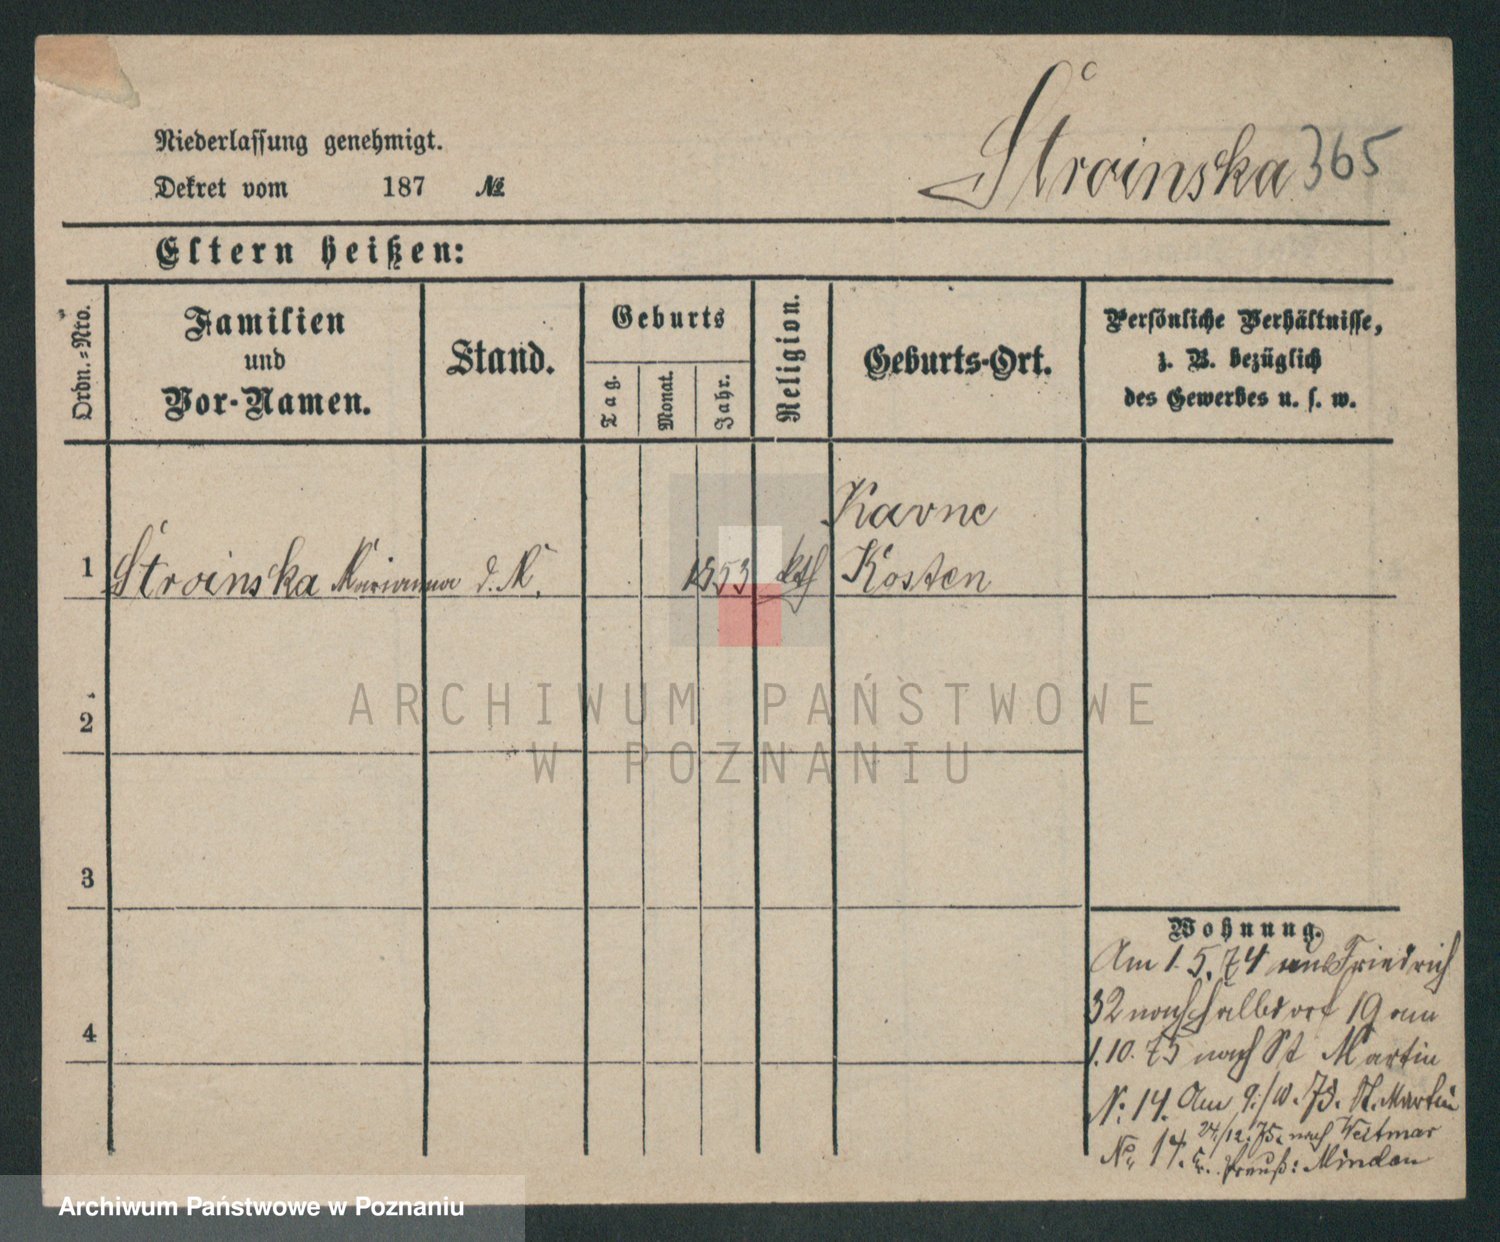 Niederlassung genehmigt.
Dekret vom 187 №
Stroinska 365
Eltern heißen:
Ordn.=Nro.
Familien
und
Vor-Namen.
Stand.
Geburts
Tag.
Monat.
Jahr.
Religion.
Geburts-Ort.
Persönliche Verhältnisse,
z. B. bezüglich
des Gewerbes u. s. w.
Karne
1 Stroinska Marianna d. M. 1853 kth Kosten
2
3
4
Wohnung.
Am 1. 5. 74 aus Friedrich
32 nach Halbdorf 19 am
1. 10. 75 nach St Martin
N: 14. Am 9./10. 75. St. Martin
No 14. 24/12. 75. nach Weitmar
Kr. Preuß: Minden
ARCHIWUM PAŃSTWOWE
W POZNANIU
Archiwum Państwowe w Poznaniu